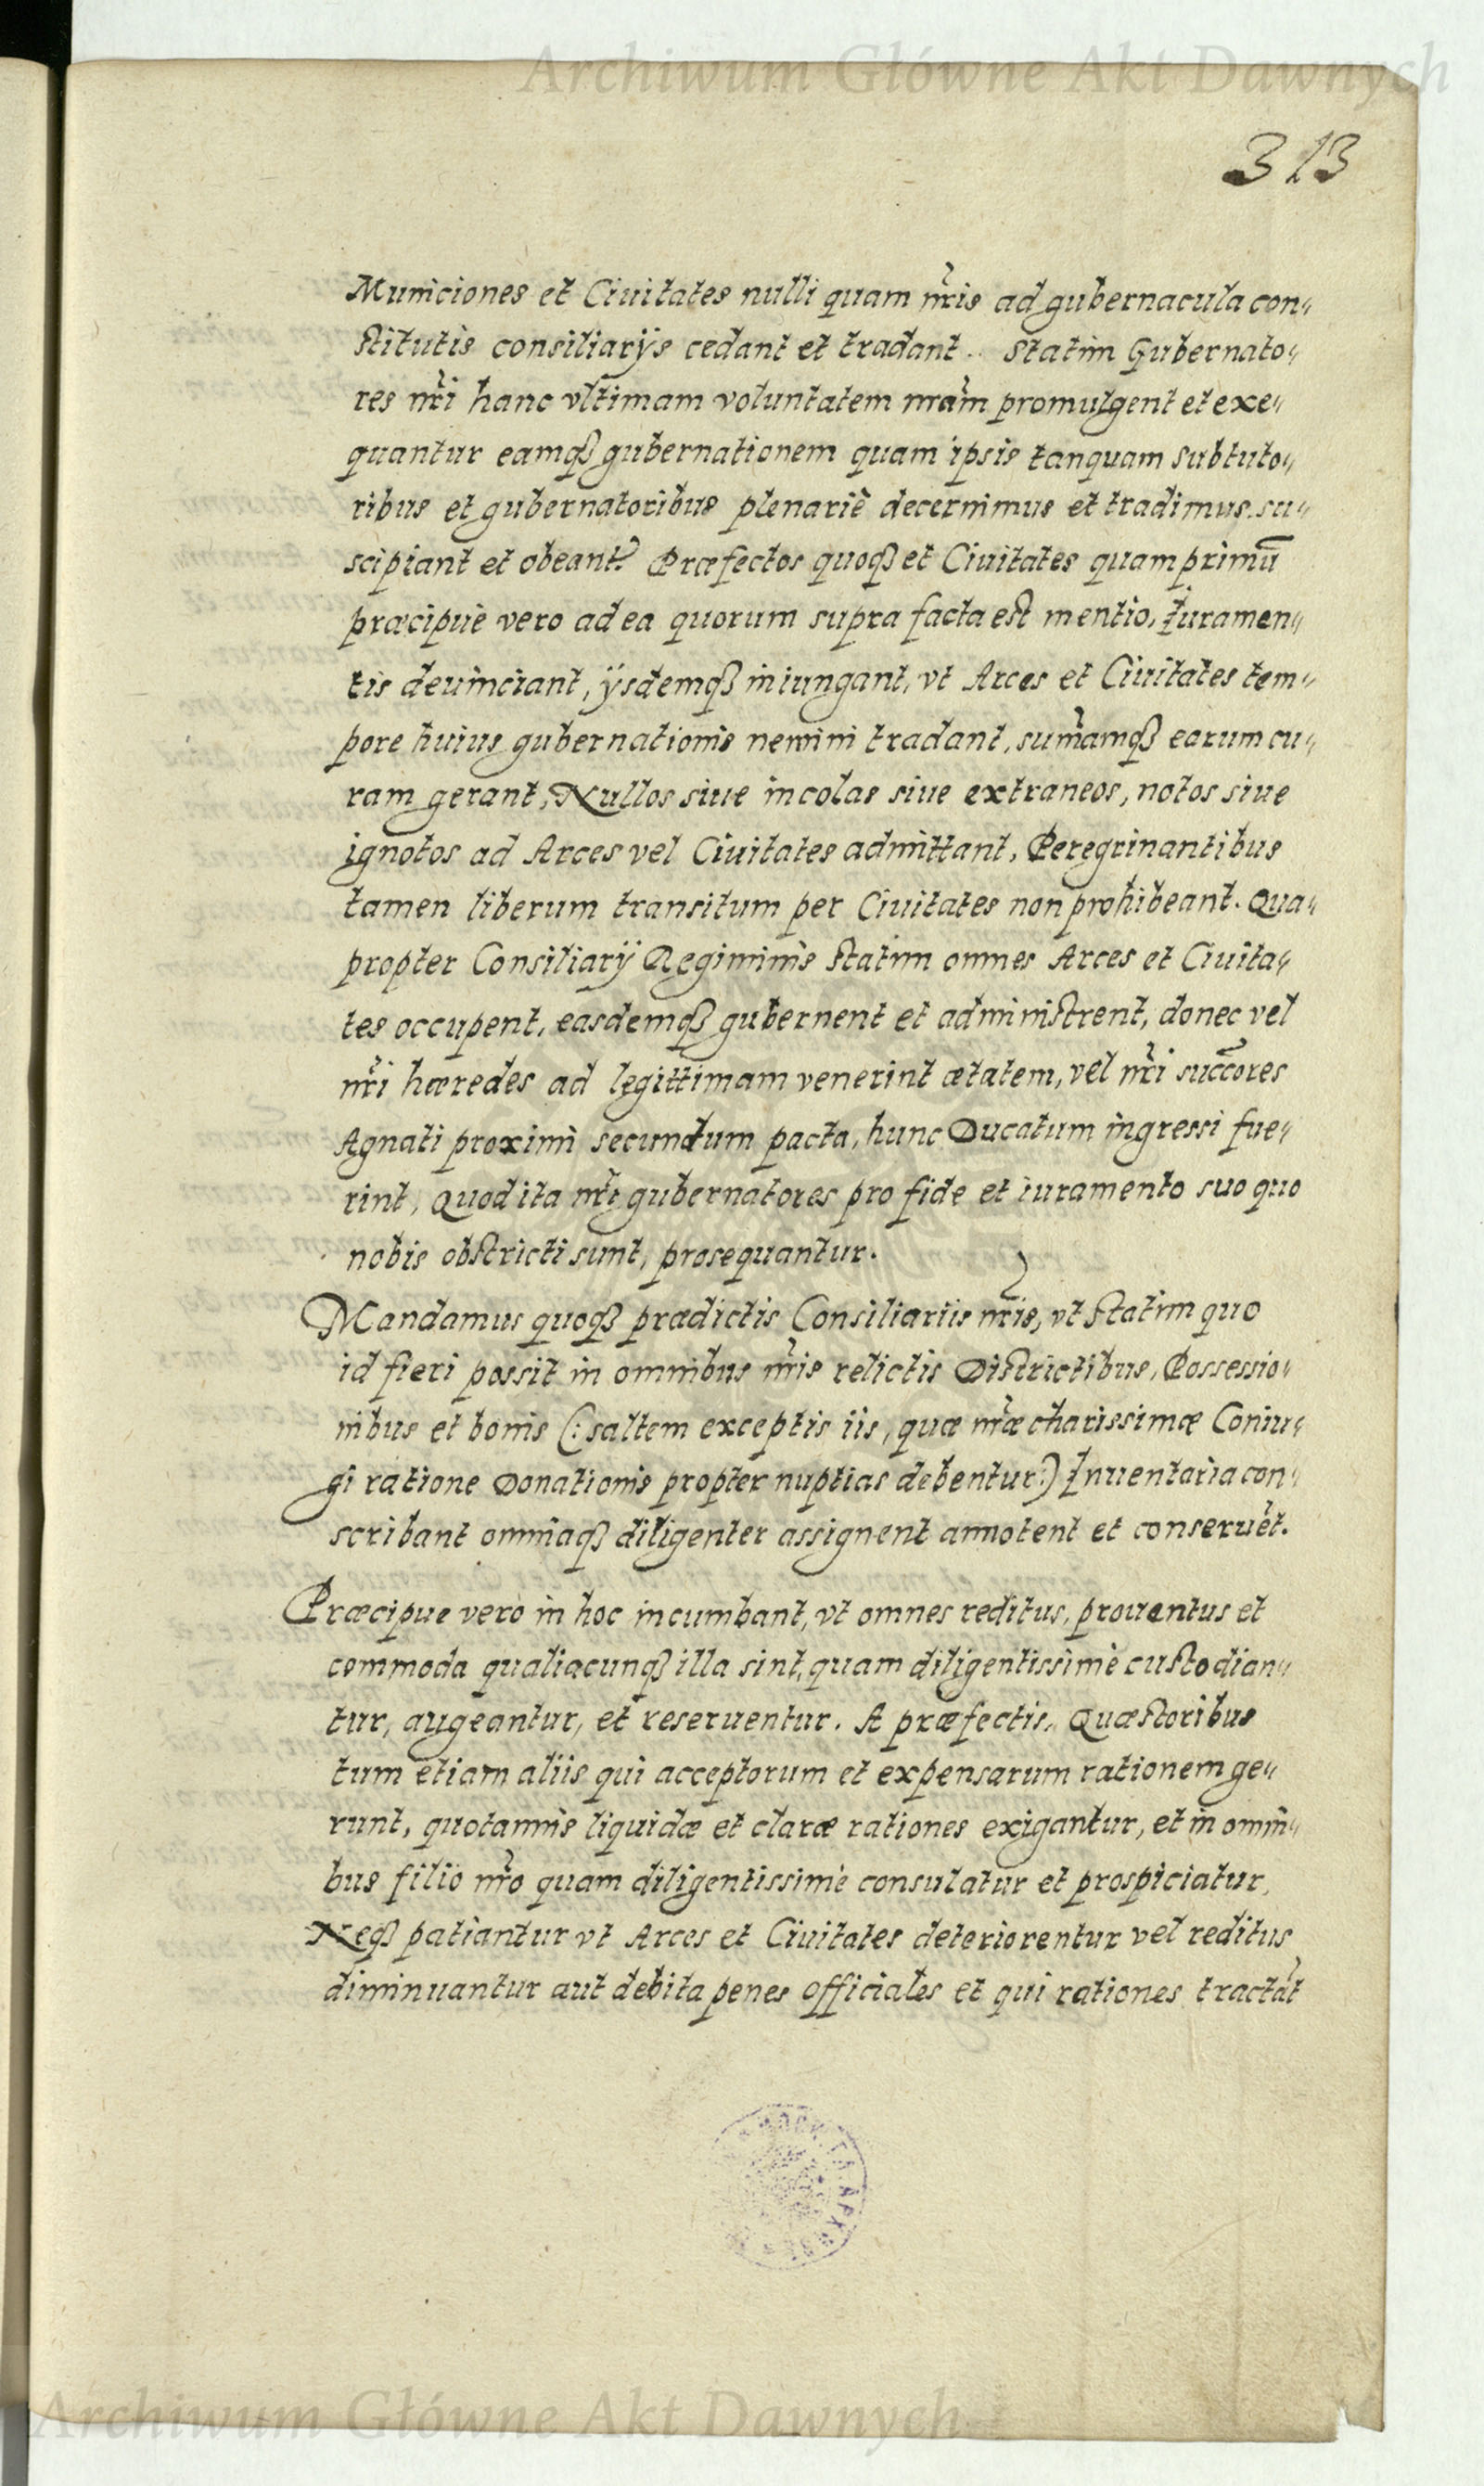 Archiwum Główne Akt Dawnych
313
Municiones et Ciuitates nulli quam nr̃is ad gubernacula con〃
stitutis consiliarijs cedant et tradant.. Statim Gubernato〃
res nr̃i hanc vltimam voluntatem nrãm promulgent et exe〃
quantur eamqȝ gubernationem quam ipsis tanquam subtuto〃
ribus et gubernatoribus plenariè decernimus et tradimus. su〃
scipiant et obeant. Præfectos quoqȝ et Ciuitates quam primū
præcipuè vero ad ea quorum supra facta est mentio, Iuramen〃
tis deuinciant, ijsdemqȝ iniungant, vt Arces et Ciuitates tem〃
pore huius gubernationis nemini tradant, sum̃amqȝ earum cu〃
ram gerant, Nullos siue incolas siue extraneos, notos siue
ignotos ad Arces vel Ciuitates admittant, Peregrinantibus
tamen liberum transitum per Ciuitates non prohibeant. Qua〃
propter Consiliarij Regiminis statim omnes Arces et Ciuita〃
tes occupent, easdemqȝ gubernent et administrent, donec vel
nr̃i hæredes ad legittimam venerint ætatem, vel nr̃i succ̃ores
Agnati proximi secundum pacta, hunc Ducatum ingressi fue〃
rint, Quod ita nr̃i gubernatores pro fide et iuramento suo quo
nobis obstricti sunt, prosequantur.
Mandamus quoqȝ prædictis Consiliariis nr̃is, vt statim quo
id fieri possit in omnibus nr̃is relictis Districtibus, Possessio〃
nibus et bonis (: saltem exceptis iis, quæ nr̃æ charissimæ Coniu〃
gi ratione Donationis propter nuptias debentur:) Inuentaria con〃
scribant omniaqȝ diligenter assignent annotent et conseruẽt.
Præcipue verò in hoc incumbant, vt omnes reditus, prouentus et
commoda qualiacunqȝ illa sint, quam diligentissimè custodian〃
tur, augeantur, et reseruentur. A præfectis, Quæstoribus
tum etiam aliis qui acceptorum et expensarum rationem ge〃
runt, quotannis liquidæ et claræ rationes exigantur, et in omni〃
bus filio nr̃o quam diligentissimè consulatur et prospiciatur,
Neqȝ patiantur vt Arces et Ciuitates deteriorentur vel reditus
diminuantur aut debita penes officiales et qui rationes tractãt
Archiwum Główne Akt Dawnych